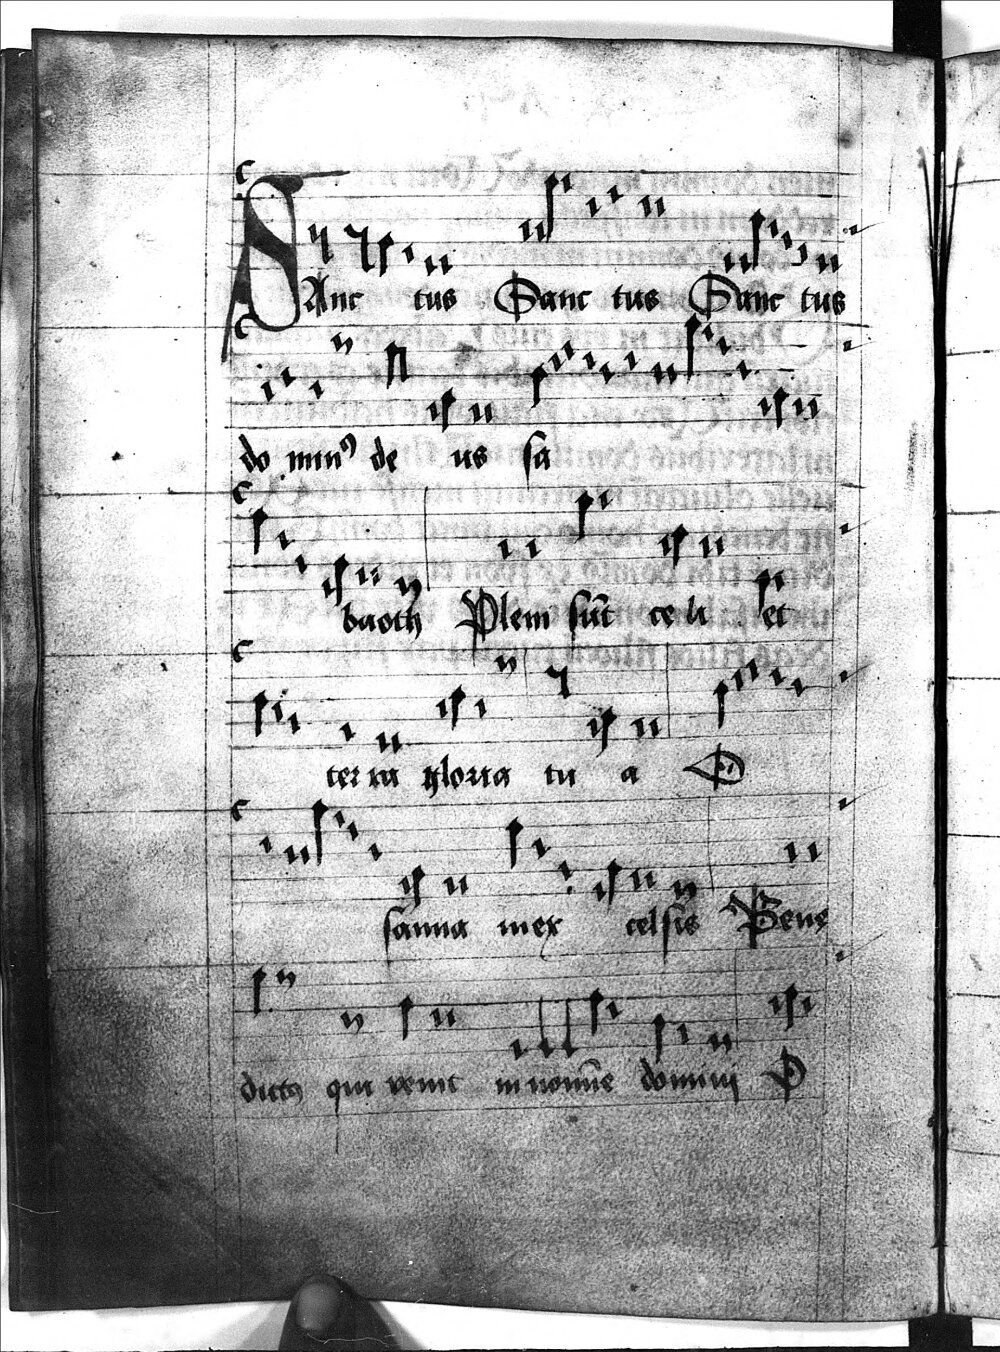 SAnc tus Sanc tus Sanc tus
do minꝰ de us sa
baoth Pleni sūt celi et
terra gloria tu a O
sanna inex celsis Bene
dictꝰ qui venit in noīne domini O